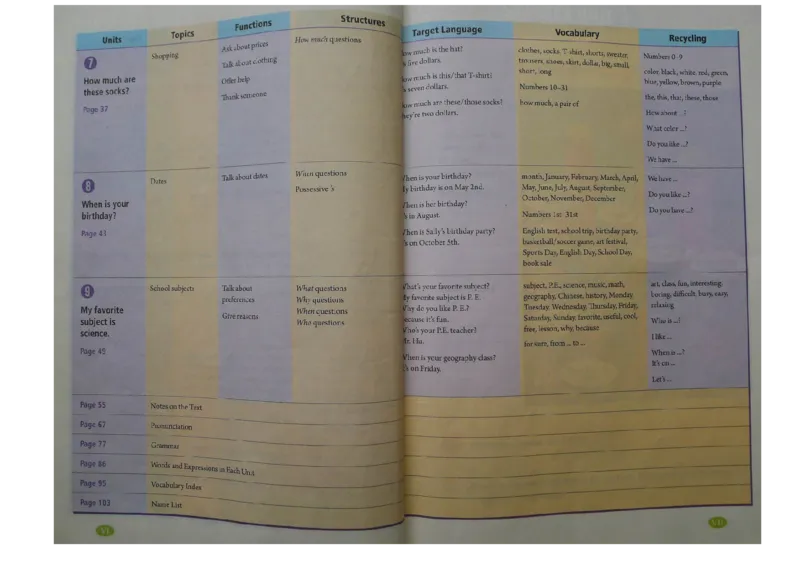 Units
Topics
Functions
Structures
Target Language
Vocabulary
Recycling
7
How much are
these socks?
Page 37
Shopping
Ask about prices
Talk about clothing
Offer help
Thank someone
How much questions
ow much is the hat?
s five dollars.
ow much is this/that T-shirt?
s seven dollars.
ow much are these/those socks?
hey're two dollars.
clothes, socks, T-shirt, shorts, sweater,
trousers, shoes, skirt, dollar, big, small,
short, long
Numbers 10–31
how much, a pair of
Numbers 0–9
color, black, white, red, green,
blue, yellow, brown, purple
the, this, that, these, those
How about ...?
What color ...?
Do you like ...?
We have ...
8
When is your
birthday?
Page 41
Dates
Talk about dates
When questions
Possessive 's
hen is your birthday?
y birthday is on May 2nd.
hen is her birthday?
's in August.
hen is Sally's birthday party?
's on October 5th.
month, January, February, March, April,
May, June, July, August, September,
October, November, December
Numbers 1st–31st
English test, school trip, birthday party,
basketball/soccer game, art festival,
Sports Day, English Day, School Day,
book sale
We have ...
Do you like ...?
Do you have ...?
9
My favorite
subject is
science.
Page 45
School subjects
Talk about
preferences
Give reasons
What questions
Why questions
When questions
Who questions
hat's your favorite subject?
y favorite subject is P. E.
hy do you like P. E.?
ecause it's fun.
ho's your P.E. teacher?
r. Hu.
hen is your geography class?
's on Friday.
subject, P.E., science, music, math,
geography, Chinese, history, Monday,
Tuesday, Wednesday, Thursday, Friday,
Saturday, Sunday, favorite, useful, cool,
free, lesson, why, because
for sure, from ... to ...
art, class, fun, interesting,
boring, difficult, busy, easy,
relaxing
Who is ...?
I like ...
When is ...?
It's on ...
Let's ...
Page 55 Notes on the Text
Page 67 Pronunciation
Page 77 Grammar
Page 86 Words and Expressions in Each Unit
Page 95 Vocabulary Index
Page 103 Name List
VI
VII